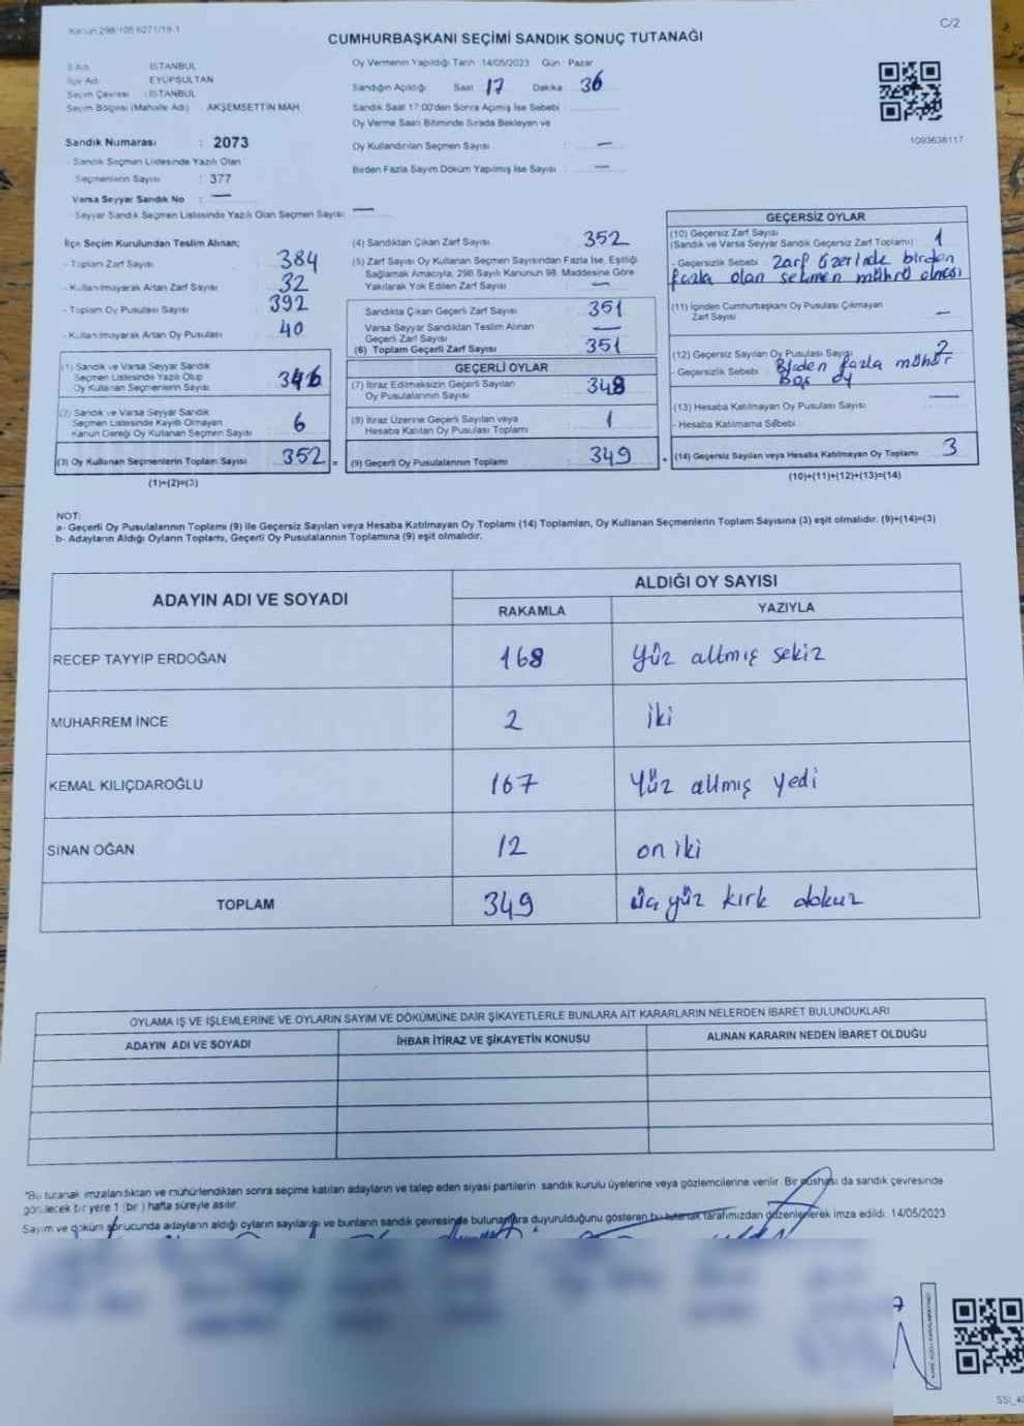 Kanun 298/105 6271/18-1
C/2
CUMHURBAŞKANI SEÇİMİ SANDIK SONUÇ TUTANAĞI
İl Adı : İSTANBUL
İlçe Adı : EYÜPSULTAN
Seçim Çevresi : İSTANBUL
Seçim Bölgesi (Mahalle Adı) : AKŞEMSETTİN MAH.
Sandık Numarası : 2073
- Sandık Seçmen Listesinde Yazılı Olan
Seçmenlerin Sayısı : 377
Varsa Seyyar Sandık No : —
- Seyyar Sandık Seçmen Listesinde Yazılı Olan Seçmen Sayısı: —
Oy Vermenin Yapıldığı Tarih :14/05/2023 Gün : Pazar
Sandığın Açıldığı : Saat : 17 Dakika : 36
Sandık Saat 17:00'den Sonra Açılmış İse Sebebi :
Oy Verme Saati Bitiminde Sırada Bekleyen ve
Oy Kullandırılan Seçmen Sayısı : —
Birden Fazla Sayım Döküm Yapılmış İse Sayısı : —
1093638117
İlçe Seçim Kurulundan Teslim Alınan;
- Toplam Zarf Sayısı : 384
- Kullanılmayarak Artan Zarf Sayısı : 32
- Toplam Oy Pusulası Sayısı : 392
- Kullanılmayarak Artan Oy Pusulası : 40
(1) Sandık ve Varsa Seyyar Sandık
Seçmen Listesinde Yazılı Olup
Oy Kullanan Seçmenlerin Sayısı : 346
(2) Sandık ve Varsa Seyyar Sandık
Seçmen Listesinde Kayıtlı Olmayan
Kanun Gereği Oy Kullanan Seçmen Sayısı : 6
(3) Oy Kullanan Seçmenlerin Toplam Sayısı : 352
(1)+(2)=(3)
(4) Sandıktan Çıkan Zarf Sayısı : 352
(5) Zarf Sayısı Oy Kullanan Seçmen Sayısından Fazla İse, Eşitliği
Sağlamak Amacıyla, 298 Sayılı Kanunun 98. Maddesine Göre
Yakılarak Yok Edilen Zarf Sayısı : —
Sandıkta Çıkan Geçerli Zarf Sayısı : 351
Varsa Seyyar Sandıktan Teslim Alınan
Geçerli Zarf Sayısı : —
(6) Toplam Geçerli Zarf Sayısı : 351
GEÇERLİ OYLAR
(7) İtiraz Edilmeksizin Geçerli Sayılan
Oy Pusulalarının Sayısı : 348
(8) İtiraz Üzerine Geçerli Sayılan veya
Hesaba Katılan Oy Pusulası Toplamı : 1
(9) Geçerli Oy Pusulalarının Toplamı : 349
GEÇERSİZ OYLAR
(10) Geçersiz Zarf Sayısı
(Sandık ve Varsa Seyyar Sandık Geçersiz Zarf Toplamı) : 1
- Geçersizlik Sebebi : Zarf üzerinde birden
fazla olan seçmen mührü olması
(11) İçinden Cumhurbaşkanı Oy Pusulası Çıkmayan
Zarf Sayısı : —
(12) Geçersiz Sayılan Oy Pusulası Sayısı : 2
- Geçersizlik Sebebi : Birden fazla mühür
Boş oy
(13) Hesaba Katılmayan Oy Pusulası Sayısı : —
- Hesaba Katılmama Sebebi :
(14) Geçersiz Sayılan veya Hesaba Katılmayan Oy Toplamı : 3
(10)+(11)+(12)+(13)=(14)
NOT:
a- Geçerli Oy Pusulalarının Toplamı (9) ile Geçersiz Sayılan veya Hesaba Katılmayan Oy Toplamı (14) Toplamları, Oy Kullanan Seçmenlerin Toplam Sayısına (3) eşit olmalıdır. (9)+(14)=(3)
b- Adayların Aldığı Oyların Toplamı, Geçerli Oy Pusulalarının Toplamına (9) eşit olmalıdır.
ADAYIN ADI VE SOYADI
ALDIĞI OY SAYISI
RAKAMLA YAZIYLA
RECEP TAYYİP ERDOĞAN 168 Yüz altmış sekiz
MUHARREM İNCE 2 iki
KEMAL KILIÇDAROĞLU 167 Yüz altmış yedi
SİNAN OĞAN 12 on iki
TOPLAM 349 üç yüz kırk dokuz
OYLAMA İŞ VE İŞLEMLERİNE VE OYLARIN SAYIM VE DÖKÜMÜNE DAİR ŞİKAYETLERLE BUNLARA AİT KARARLARIN NELERDEN İBARET BULUNDUKLARI
ADAYIN ADI VE SOYADI İHBAR İTİRAZ VE ŞİKAYETİN KONUSU ALINAN KARARIN NEDEN İBARET OLDUĞU
*Bu tutanak imzalandıktan ve mühürlendikten sonra seçime katılan adayların ve talep eden siyasi partilerin sandık kurulu üyelerine veya gözlemcilerine verilir. Bir nüshası da sandık çevresinde
görülecek bir yere 1 (bir) hafta süreyle asılır.
Sayım ve döküm sonucunda adayların aldığı oyların sayılarını ve bunların sandık çevresinde bulunanlara duyurulduğunu gösteren bu tutanak tarafımızdan düzenlenerek imza edildi. 14/05/2023